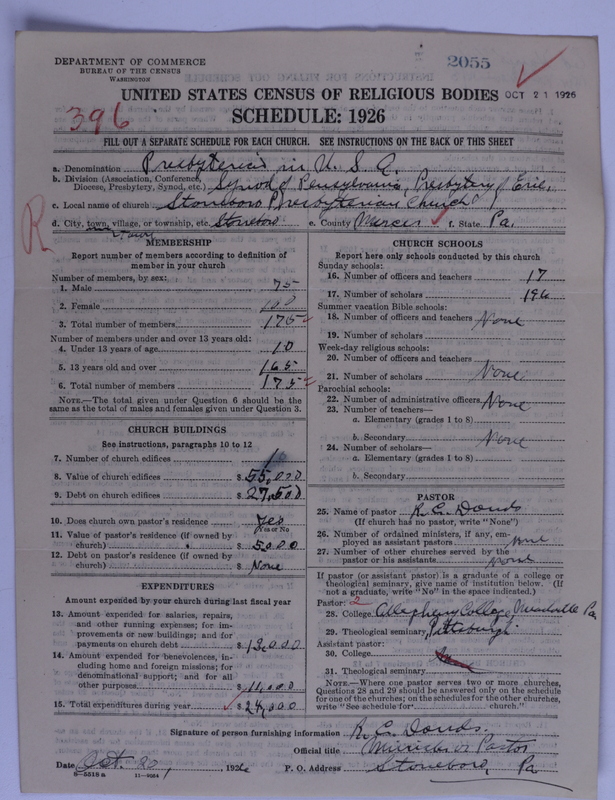 DEPARTMENT OF COMMERCE
BUREAU OF THE CENSUS
WASHINGTON
2055
UNITED STATES CENSUS OF RELIGIOUS BODIES OCT 21 1926
396
SCHEDULE: 1926
FILL OUT A SEPARATE SCHEDULE FOR EACH CHURCH. SEE INSTRUCTIONS ON THE BACK OF THIS SHEET
a. Denomination Presbyterian in U. S. A.
b. Division (Association, Conference, Diocese, Presbytery, Synod, etc.) Synod of Pennsylvania, Presbytery of Erie,
c. Local name of church Stoneboro Presbyterian Church
d. City, town, village, or township, etc. Stoneboro e. County Mercer f. State Pa.
R
MEMBERSHIP
Report number of members according to definition of
member in your church
Number of members, by sex:
1. Male 75
2. Female 100
3. Total number of members 175
Number of members under and over 13 years old:
4. Under 13 years of age 10
5. 13 years old and over 165
6. Total number of members 175
NOTE.—The total given under Question 6 should be the
same as the total of males and females given under Question 3.
CHURCH BUILDINGS
See instructions, paragraphs 10 to 12
7. Number of church edifices 1
8. Value of church edifices $ 55,000
9. Debt on church edifices $ 27,500
10. Does church own pastor's residence yes
Yes or No
11. Value of pastor's residence (if owned by
church) $ 5000
12. Debt on pastor's residence (if owned by
church) $ None
EXPENDITURES
Amount expended by your church during last fiscal year
13. Amount expended for salaries, repairs,
and other running expenses; for im-
provements or new buildings; and for
payments on church debt $ 13,000
14. Amount expended for benevolences, in-
cluding home and foreign missions; for
denominational support; and for all
other purposes $ 11,000
15. Total expenditures during year $ 24,000
CHURCH SCHOOLS
Report here only schools conducted by this church
Sunday schools:
16. Number of officers and teachers 17
17. Number of scholars 196
Summer vacation Bible schools:
18. Number of officers and teachers None
19. Number of scholars
Week-day religious schools:
20. Number of officers and teachers
21. Number of scholars None
Parochial schools:
22. Number of administrative officers None
23. Number of teachers—
a. Elementary (grades 1 to 8)
b. Secondary None
24. Number of scholars—
a. Elementary (grades 1 to 8)
b. Secondary
PASTOR
25. Name of pastor R. C. Douds
(If church has no pastor, write "None")
26. Number of ordained ministers, if any, em-
ployed as assistant pastors none
27. Number of other churches served by the
pastor or his assistants none
If pastor (or assistant pastor) is a graduate of a college or
theological seminary, give name of institution below. (If
not a graduate, write "No" in the space indicated.)
Pastor: 2
28. College Allegheny College, Meadville Pa
29. Theological seminary Pittsburgh
Assistant pastor:
30. College
31. Theological seminary
NOTE.—Where one pastor serves two or more churches,
Questions 28 and 29 should be answered only on the schedule
for one of the churches; on the schedules for the other churches,
write "See schedule for church."
Signature of person furnishing information R. C. Douds.
Official title Minister or Pastor
Date Oct. 20, 1926 P. O. Address Stoneboro, Pa
8—5518 a 11—9064